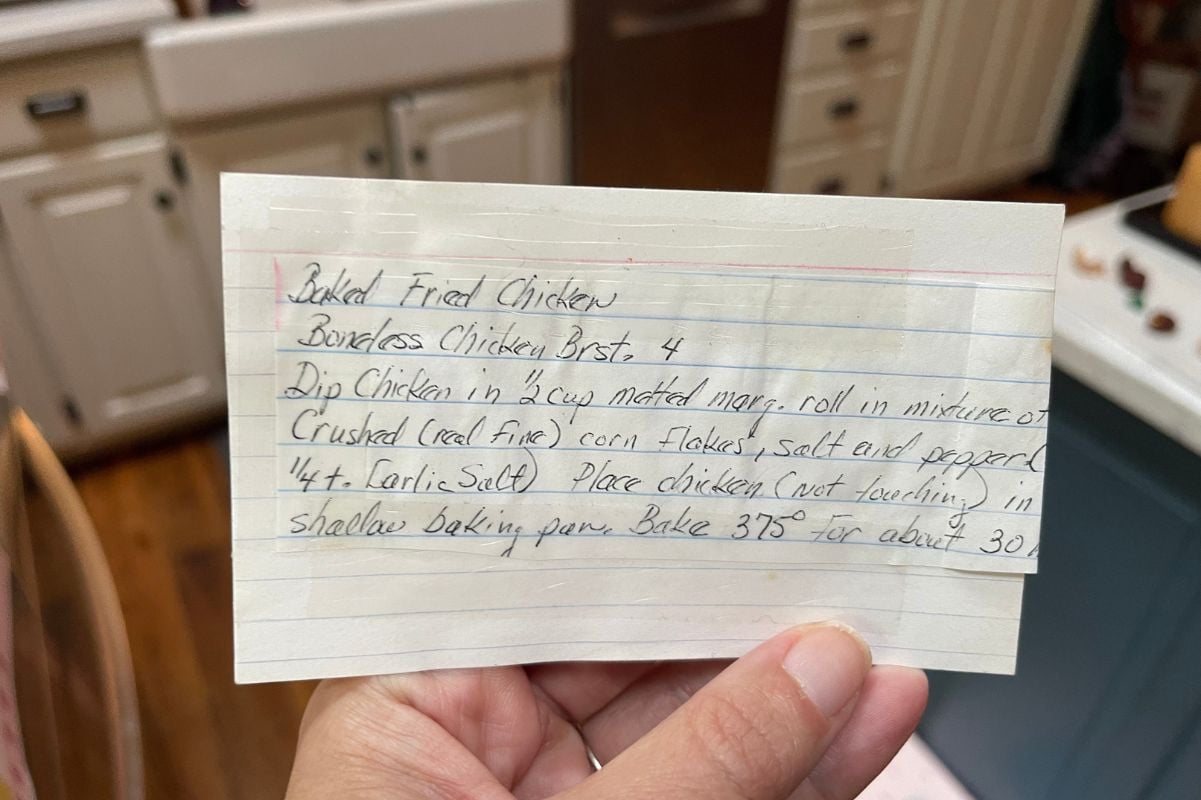 Baked Fried Chicken
Boneless Chicken Brst. 4
Dip Chicken in 1/2 cup melted marg. roll in mixture of
Crushed (real fine) corn flakes, salt and pepper
1/4 t. Garlic Salt) Place chicken (not touching) in
shallow baking pan. Bake 375° for about 30